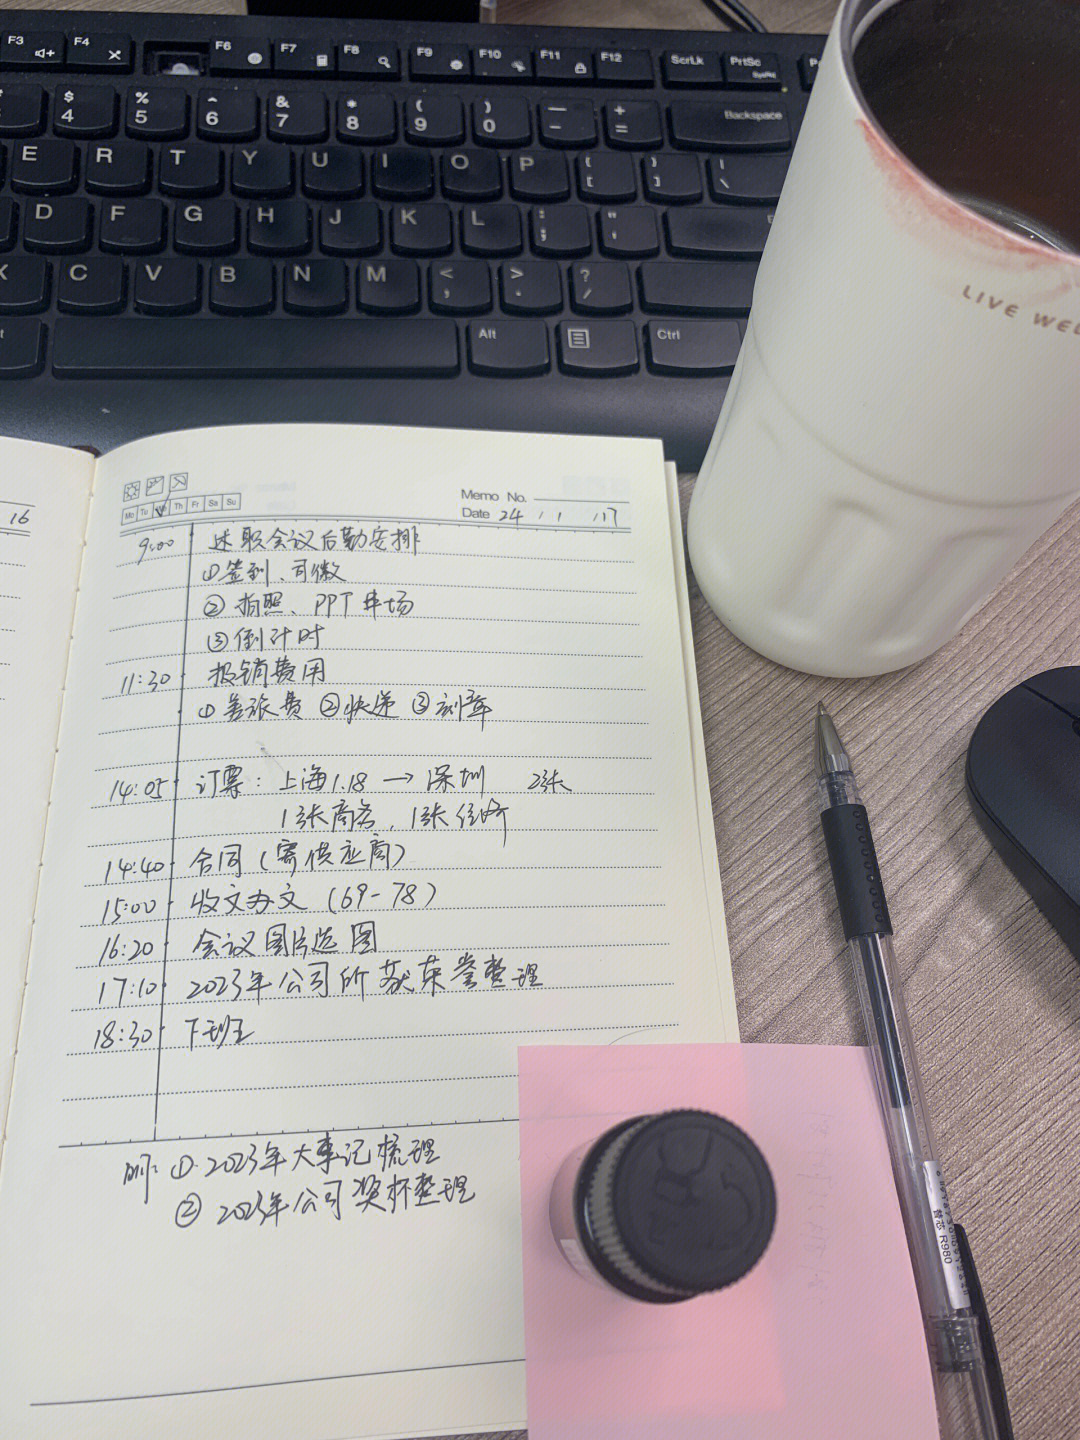 F3 F4 F6 F7 F8 F9 F10 F11 F12 ScrLk PrtSc
SysRq
$ % ^ & * ( ) — +
4 5 6 7 8 9 0 - = Backspace
E R T Y U I O P { } |
[ ] \
D F G H J K L : "
; '
X C V B N M < > ?
, . /
Alt Ctrl
LIVE WEL
16
Mo Tu We Th Fr Sa Su
Memo No.
Date 24 / 1 / 17
9:00 述职会议后勤安排
①签到、司徽
②拍照、PPT串场
③倒计时
11:30 报销费用
①差旅费 ②快递 ③刻章
14:05 订票: 上海1.18 → 深圳 2张
1张商务, 1张经济
14:40 合同(寄供应商)
15:00 收文办文 (69-78)
16:20 会议图片选图
17:10 2023年公司所获荣誉整理
18:30 下班
明: ①. 2023年大事记梳理
② 2023年公司奖杯整理
替芯 R980